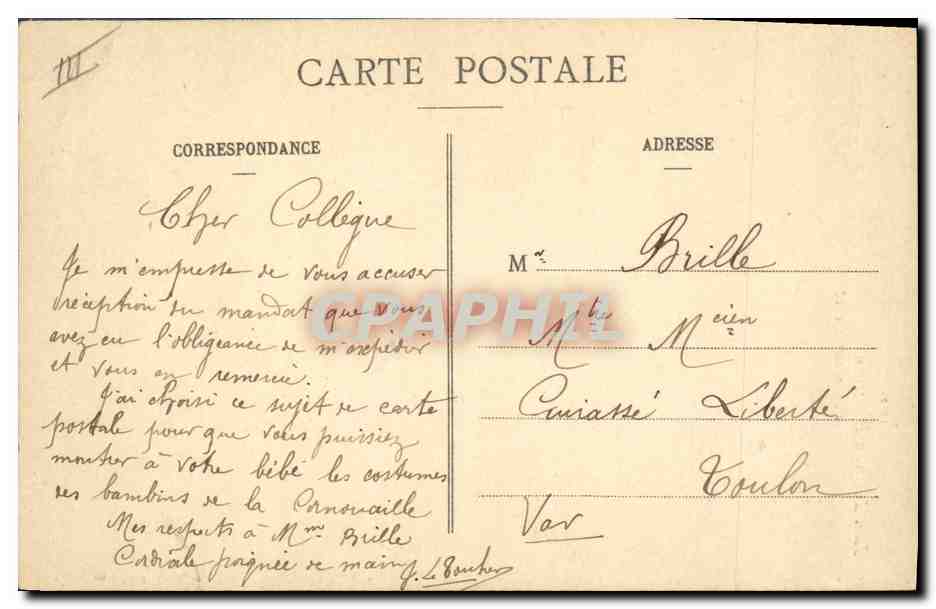 III
CARTE POSTALE
CORRESPONDANCE
Cher Collègue
Je m'empresse de vous accuser
réception du mandat que vous
avez eu l'obligeance de m'expédier
et vous en remercie.
J'ai choisi ce sujet de carte
postale pour que vous puissiez
montrer à votre bébé les costumes
des bambins de la Cornouaille
Mes respects à Mme Brille
Cordiale poignée de main J.
ADRESSE
Mr Brille
Mtre Mcien
Cuirassé Liberté
Toulon
Var
CPAPHIL